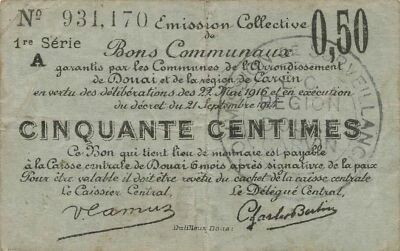 Nº 931,170 Emission Collective 0,50
de
1re Série
A
Bons Communaux
garantis par les Communes de l'Arrondissement
de Douai et de la région de Carvin
en vertu des délibérations des 22 Mai 1916 et en exécution
du décret du 21 Septembre
CINQUANTE CENTIMES
Ce Bon qui tient lieu de monnaie est payable
à la Caisse centrale de Douai 6 mois après signature de la paix
Pour être valable il doit être revêtu du cachet de la caisse centrale
Le Caissier Central, Le Délégué Central,
Charles Bertin
Douai
REGION